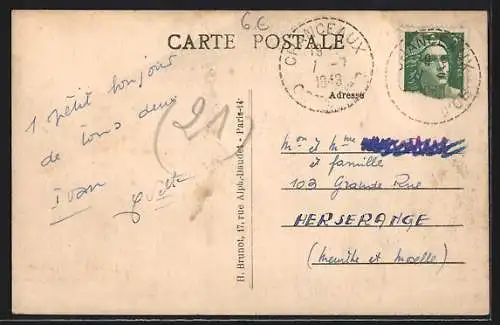 6€
CARTE POSTALE
CHANCEAUX
1948
Adresse
1 petit bonjour
de tous deux
Ivan Yvette
(21)
H. Brunot, 17, rue Alph.-Daudet - Paris-14e
Mon et Mme
et famille
103 Grande Rue
HERSERANGE
(Meurthe et Moselle)